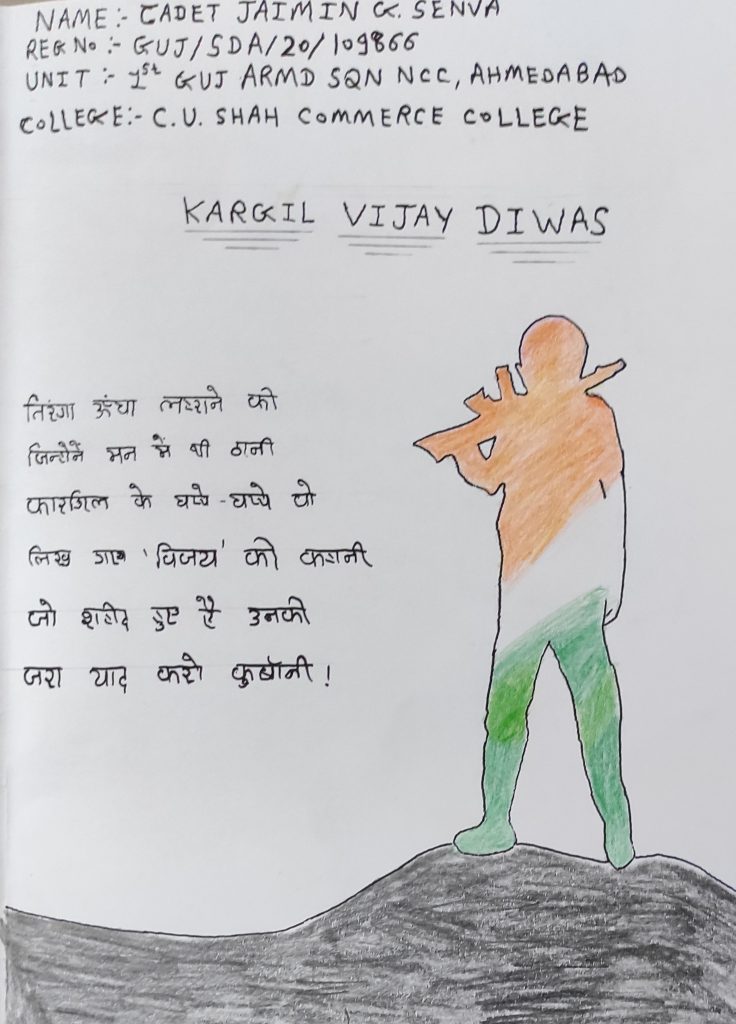 NAME:- CADET JAIMIN G. SENVA
REG No :- GUJ/SDA/20/109866
UNIT :- 1st GUJ ARMD SQN NCC, AHMEDABAD
COLLEGE:- C.U. SHAH COMMERCE COLLEGE
KARGIL VIJAY DIWAS
तिरंगा ऊंचा लहराने की
जिन्होनें मन में थी ठानी
कारगिल के चप्पे-चप्पे पे
लिख गए 'विजय' की कहानी
जो शहीद हुए है उनकी
जरा याद करो कुर्बानी!